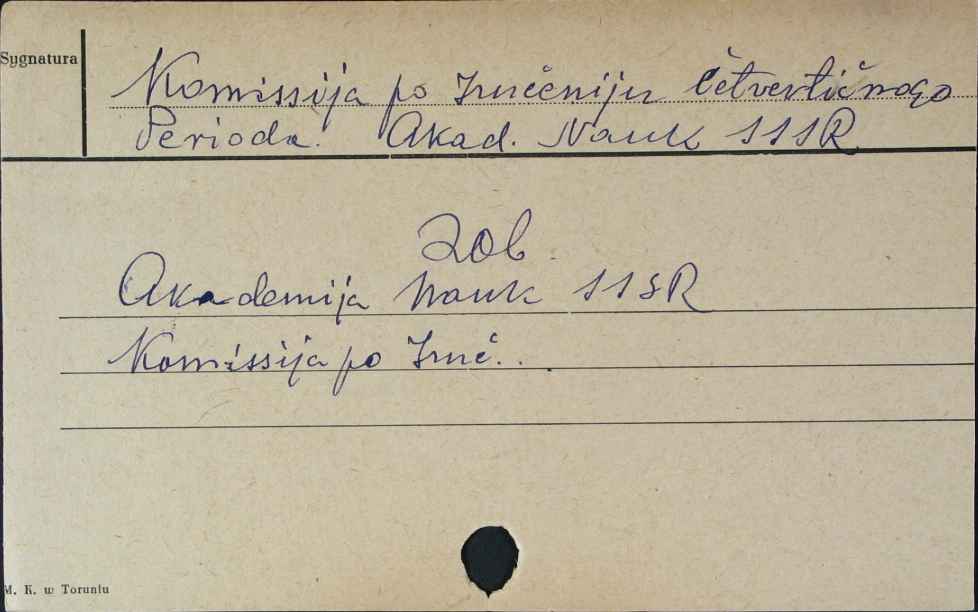 Sygnatura
Komissija po Izučeniju Četvertičnogo
Perioda. Akad. Nauk SSSR
Zob.
Akademija Nauk SSSR
Komissija po Izuč...
M. K. w Toruniu